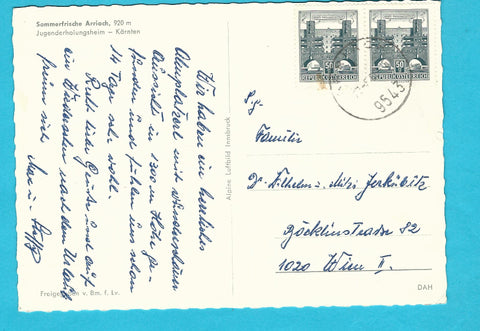 Sommerfrische Arriach, 920 m
Jugenderholungsheim — Kärnten
Wir haben ein herrliches
Omuplatzerl mit wundersbarer
Aussicht in 1300 m Höhe ge-
funden und fühlen uns schon
14 Tage sehr wohl.
Recht liebe Grüße und auf
ein Wiedersehen nach dem Urlaub
freuen sich
Max u.
Freigegeben v. Bm. f. Lv.
Alpine Luftbild Innsbruck
50
REPUBLIK ÖSTERREICH
50
REPUBLIK ÖSTERREICH
9543
Familie
Dr. Wilhelm u. Mitzi Jerkübitz
Böcklinstrasse 82
1020 Wien II.
DAH